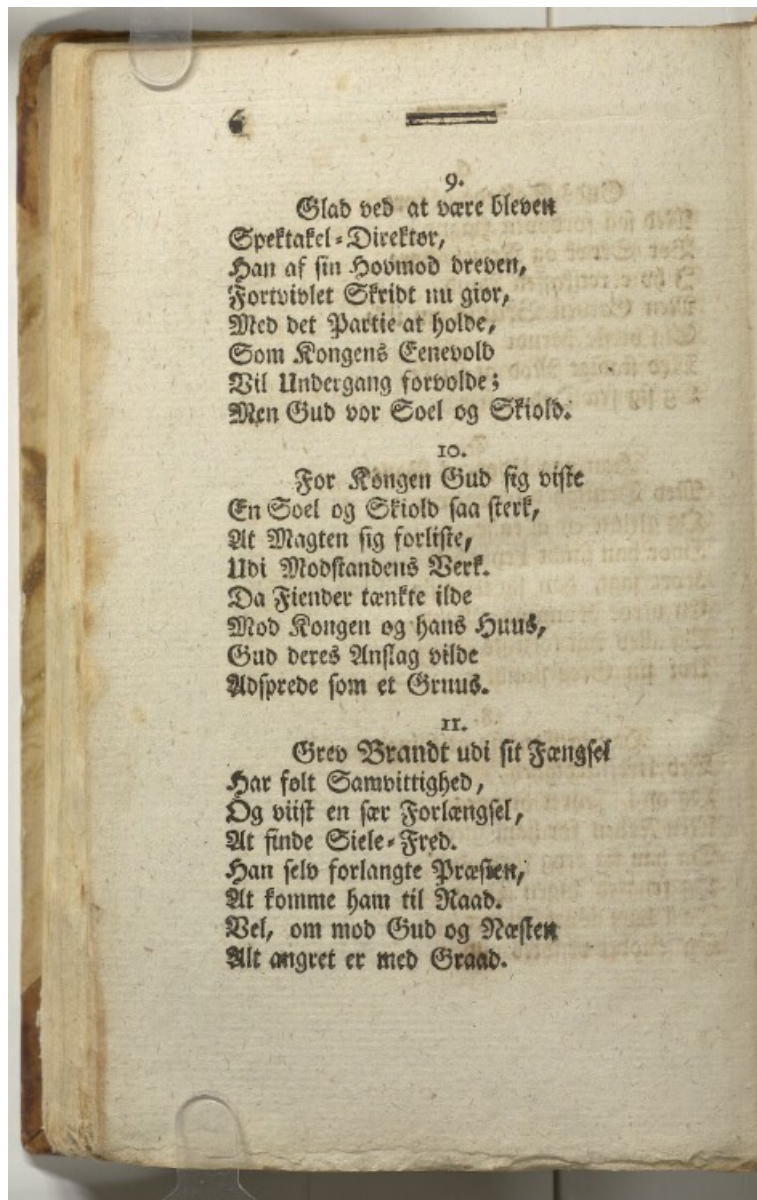 6
9.
Glad ved at være bleven
Spektakel-Direktør,
Han af sin Hovmod dreven,
Fortvivlet Skridt nu giør,
Med det Partie at holde,
Som Kongens Eenevold
Vil Undergang forvolde;
Men Gud vor Soel og Skiold.
10.
For Kongen Gud sig viste
En Soel og Skiold saa sterk,
At Magten sig forliste,
Udi Modstandens Verk.
Da Fiender tænkte ilde
Mod Kongen og hans Huus,
Gud deres Anslag vilde
Adsprede som et Gruus.
11.
Grev Brandt udi sit Fængsel
Har følt Samvittighed,
Og viist en sær Forlængsel,
At finde Siele-Fred.
Han selv forlangte Præsten,
At komme ham til Raad.
Vel, om mod Gud og Næsten
Alt angret er med Graad.